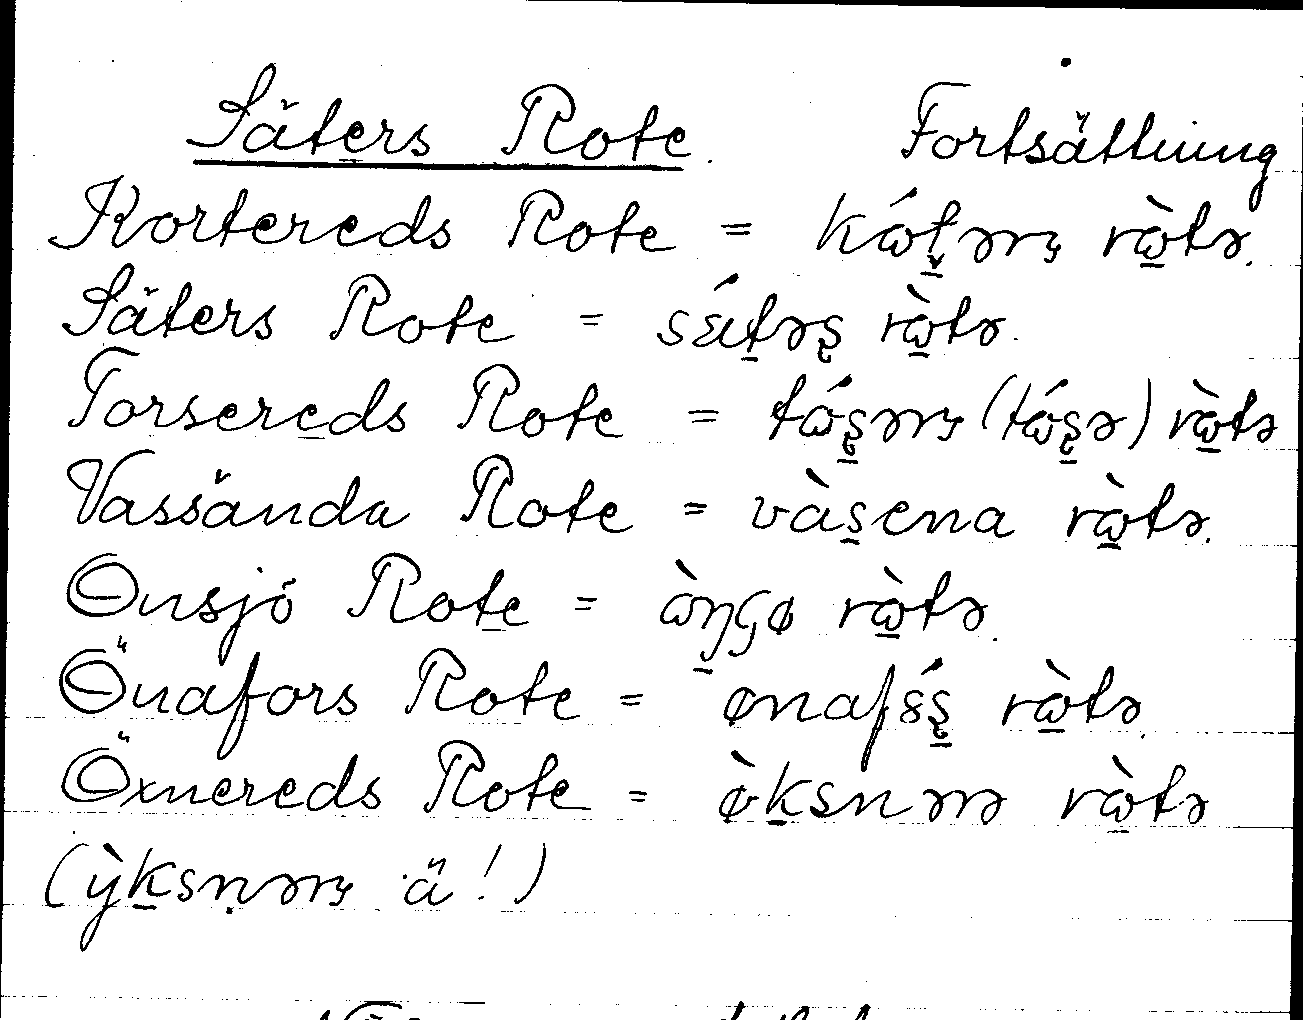 Säters Rote. Fortsättning
Kortereds Rote = kɷ́t̠ərş rɷ̠̀tə.
Säters Rote = sǽt̠əş rɷ̠̀tə.
Torsereds Rote = tɷ́ş̠ərş (tɷ́ş̠ə) rɷ̠̀tə
Vassända Rote = vàs̠ena rɷ̠̀tə.
Onsjö Rote = ɷ̀ŋ̠çø rɷ̠̀tə.
Önafors Rote = ønafɔ́ş̠ rɷ̠̀tə.
Öxnereds Rote = ø̀k̠snərə rɷ̠̀tə
(ỳk̠sṇərş ä!)